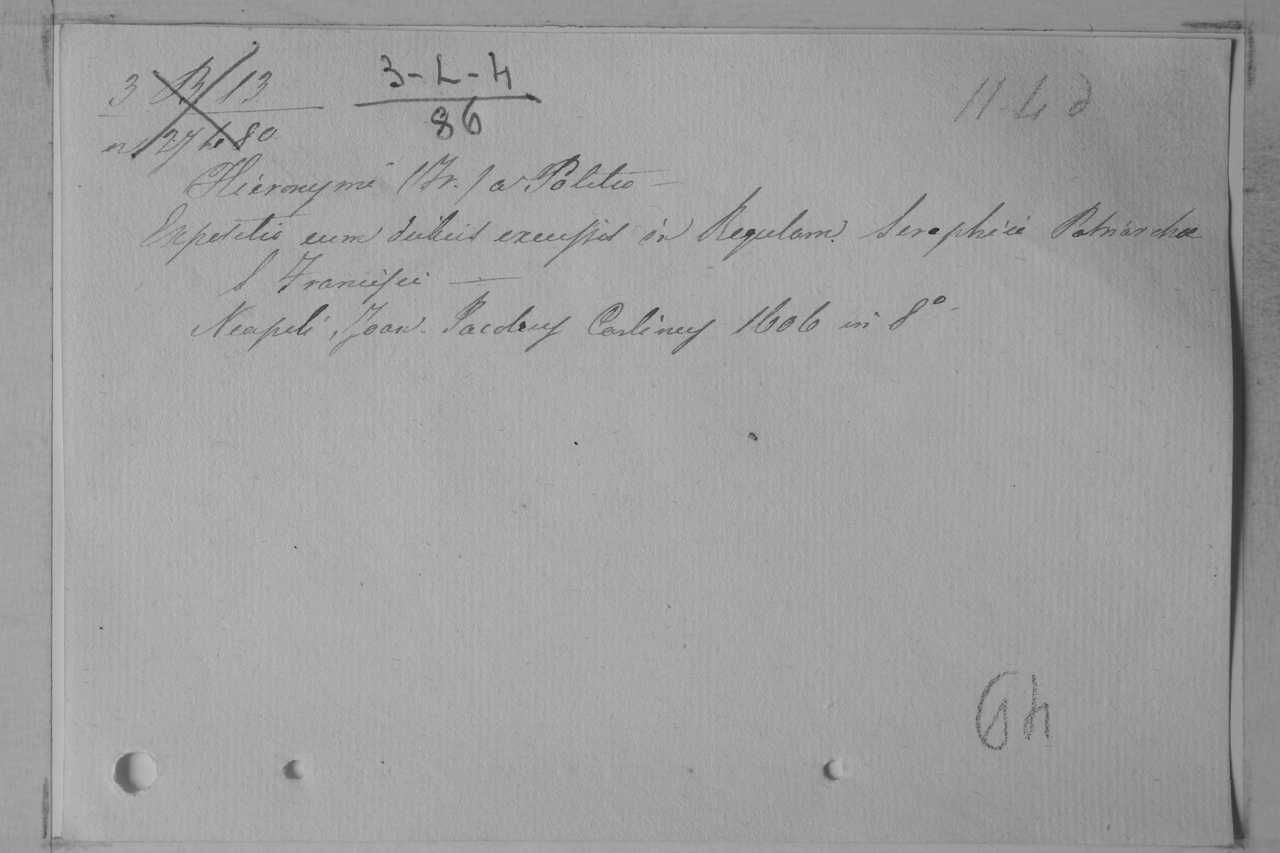 3 B/13 3-L-4
86
11-L d
Hieronymi (Fr.) a Politio —
Expositio cum dubiis excussis in Regulam Seraphici Patriarchae
S Francisci —
Neapoli, Joan. Carlinus 1606 in 8º
Gh